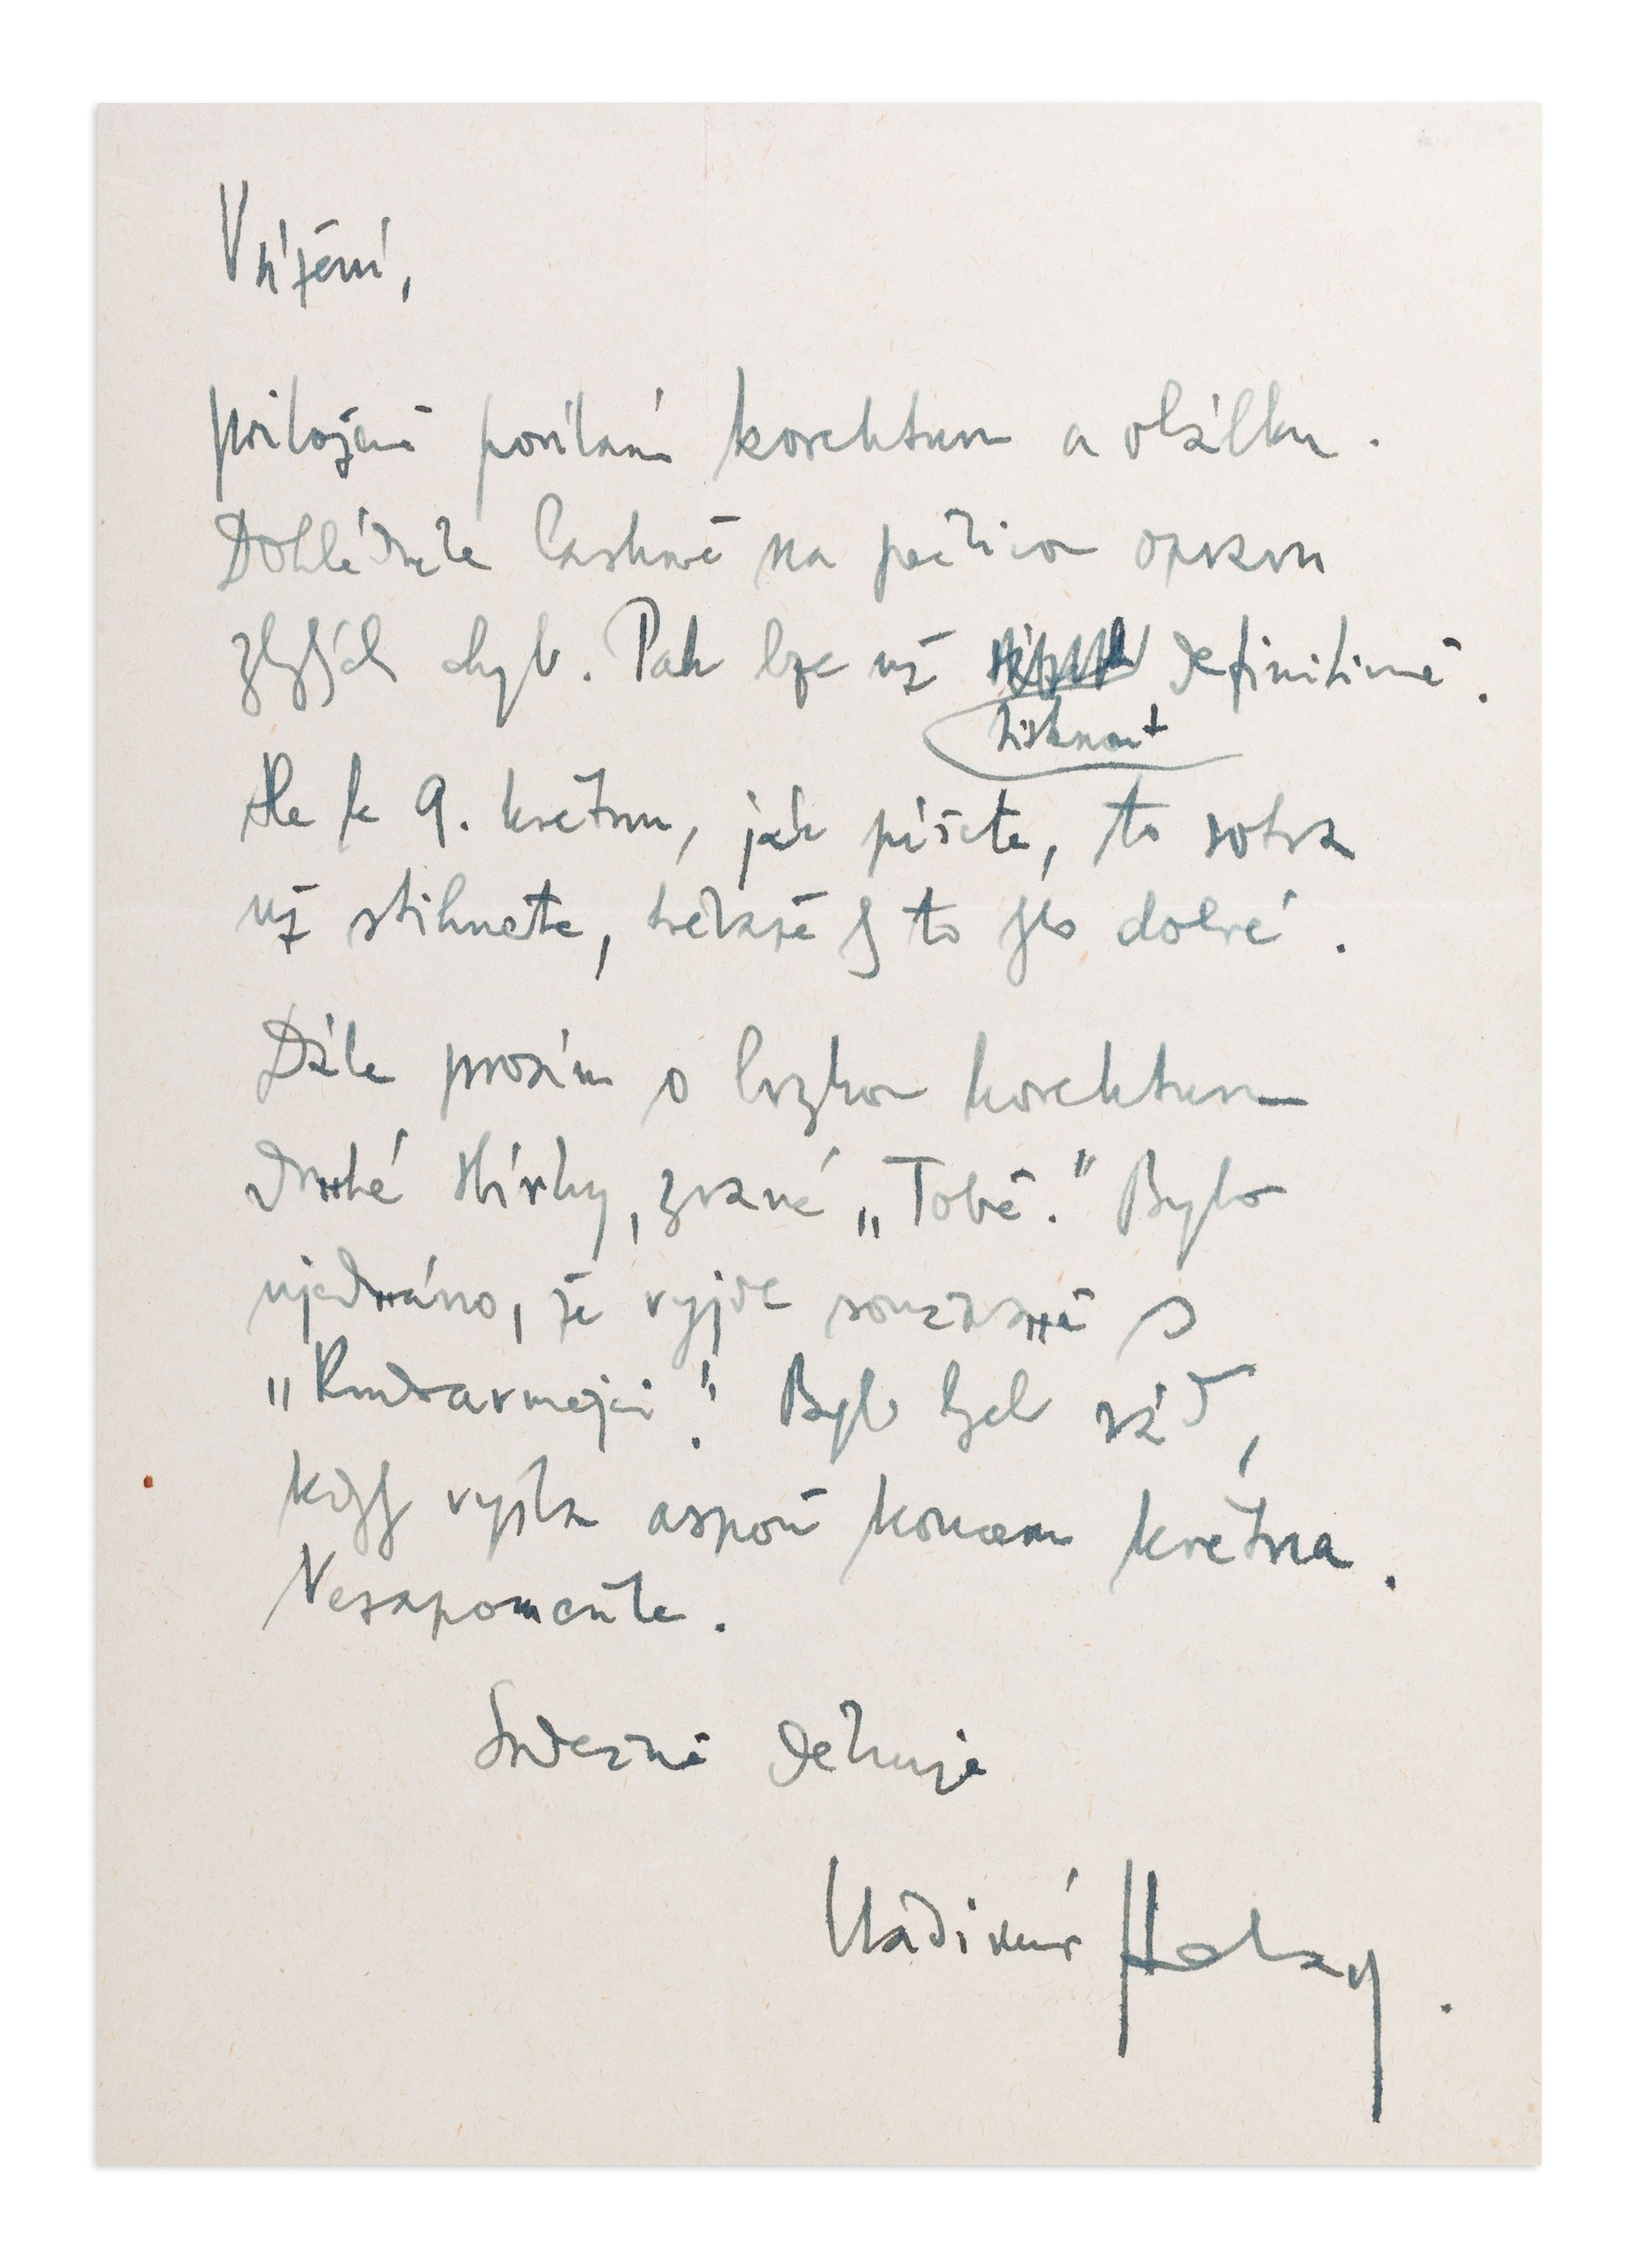 Vážení,
přiloženě posílám korekturu a obálku.
Dohlédněte laskavě na pečlivou opravu
zbylých chyb. Pak lze už definitivně.
tisknout
Ale k 9. květnu, jak píšete, to sotva
už stihnete, třebaže by to bylo dobré.
Dále prosím o brzkou korekturu
druhé sbírky, zvané „Tobě." Bylo
ujednáno, že vyjde současně s
„Rudoarmějci". Byl bych rád,
kdyby vyšla aspoň koncem května.
Nezapomeňte.
Srdečně děkuje
Vladimír Holan.